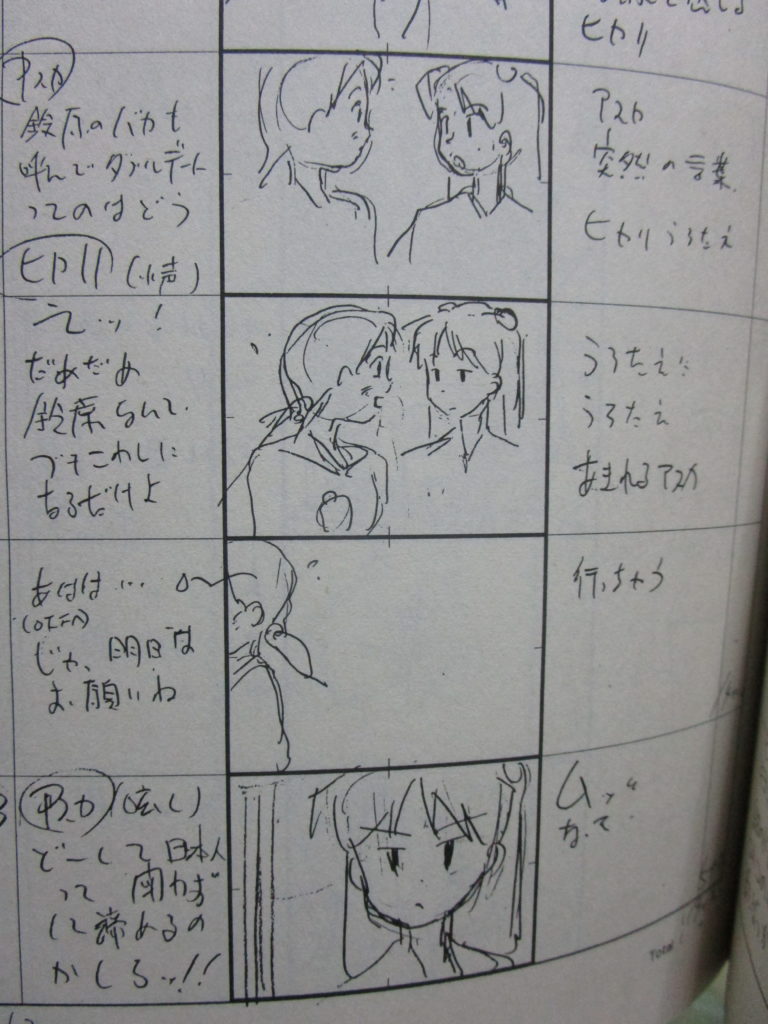 ヒカリ
アスカ
鈴原のバカも
呼んでダブルデート
ってのはどう
アスカ
突然の言葉
ヒカリうろたえ
ヒカリ(小声)
えッ!
だめだめ
鈴原なんて
ブチこわしに
なるだけよ
うろたえに
うろたえ
あきれるアスカ
あはは…
(OFF)
じゃ、明日は
お願いね
行っちゃう
アスカ
どーして日本人
って 闘わず
して諦めるの
かしらッ!!
ムッと
なって
Total